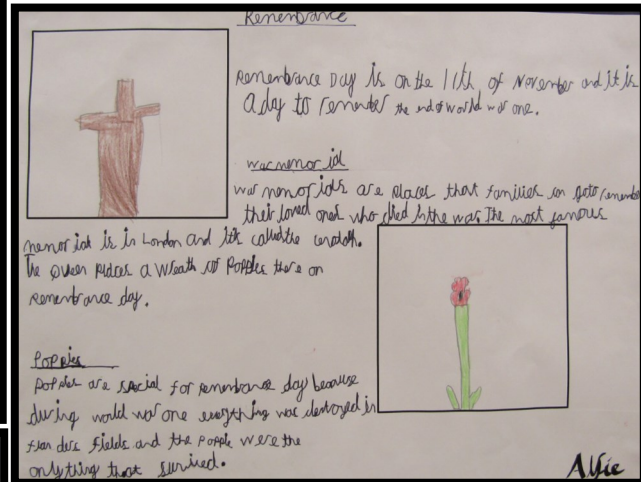 Remembrance
Remembrance Day is on the 11th of November and it is
a day to remember the end of world war one.
war memorial
war memorials are places that families can go to remember
their loved ones who died in the war. The most famous
memorial is in London and it's called the cenotaph.
The Queen places a wreath of Poppies there on
remembrance day.
Poppies
Poppies are special for remembrance day because
during world war one everything was destroyed in
flanders fields and the poppie were the
only thing that survived.
Alfie